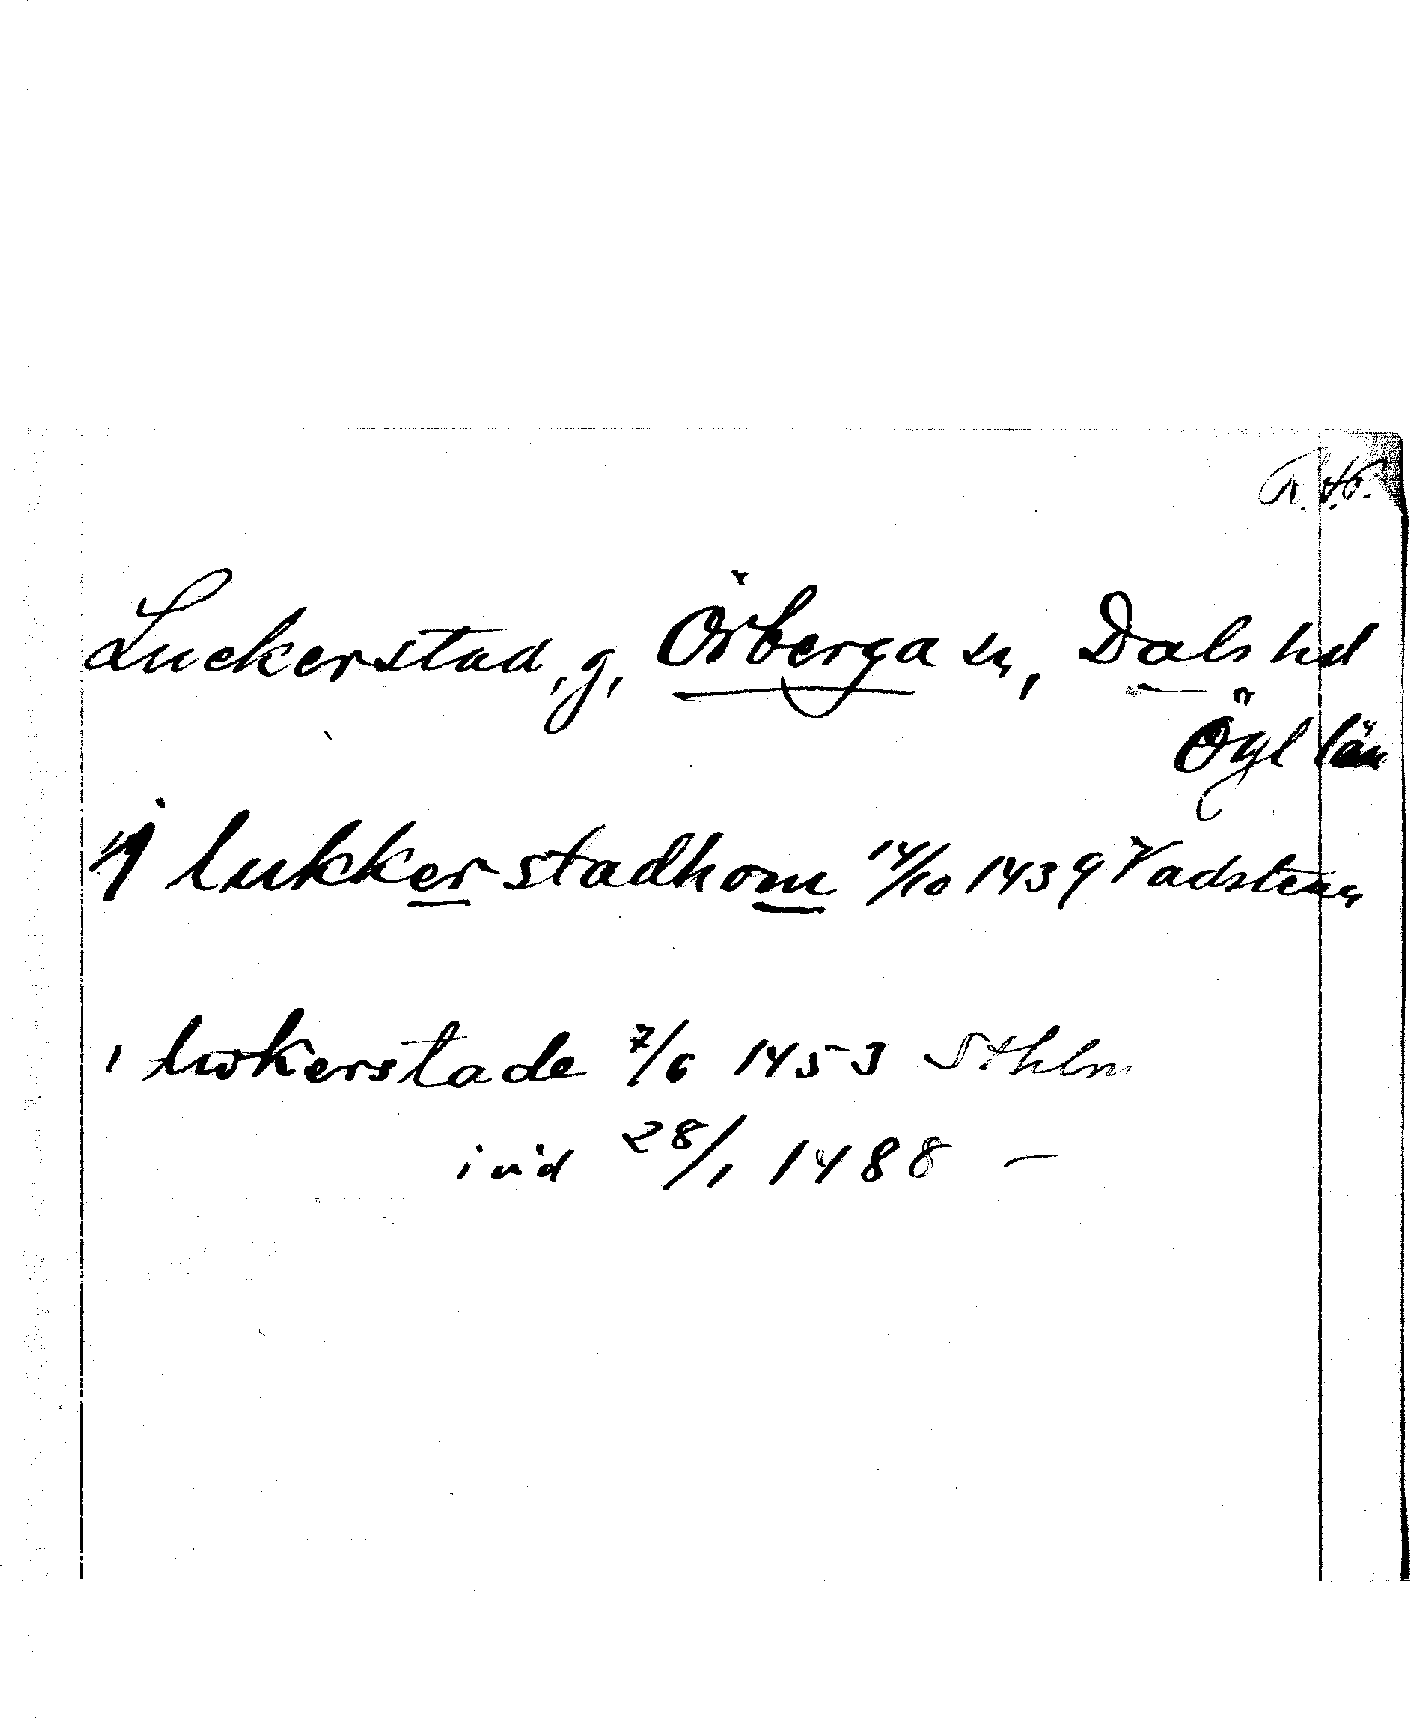 Luckerstad, g, Örberga sn, Dals hd
Ögl län
j lukkerstadhom 14/10 1439 Vadstena
i lwkerstade 7/6 1453 Sthlm
i vid 28/1 1488 —